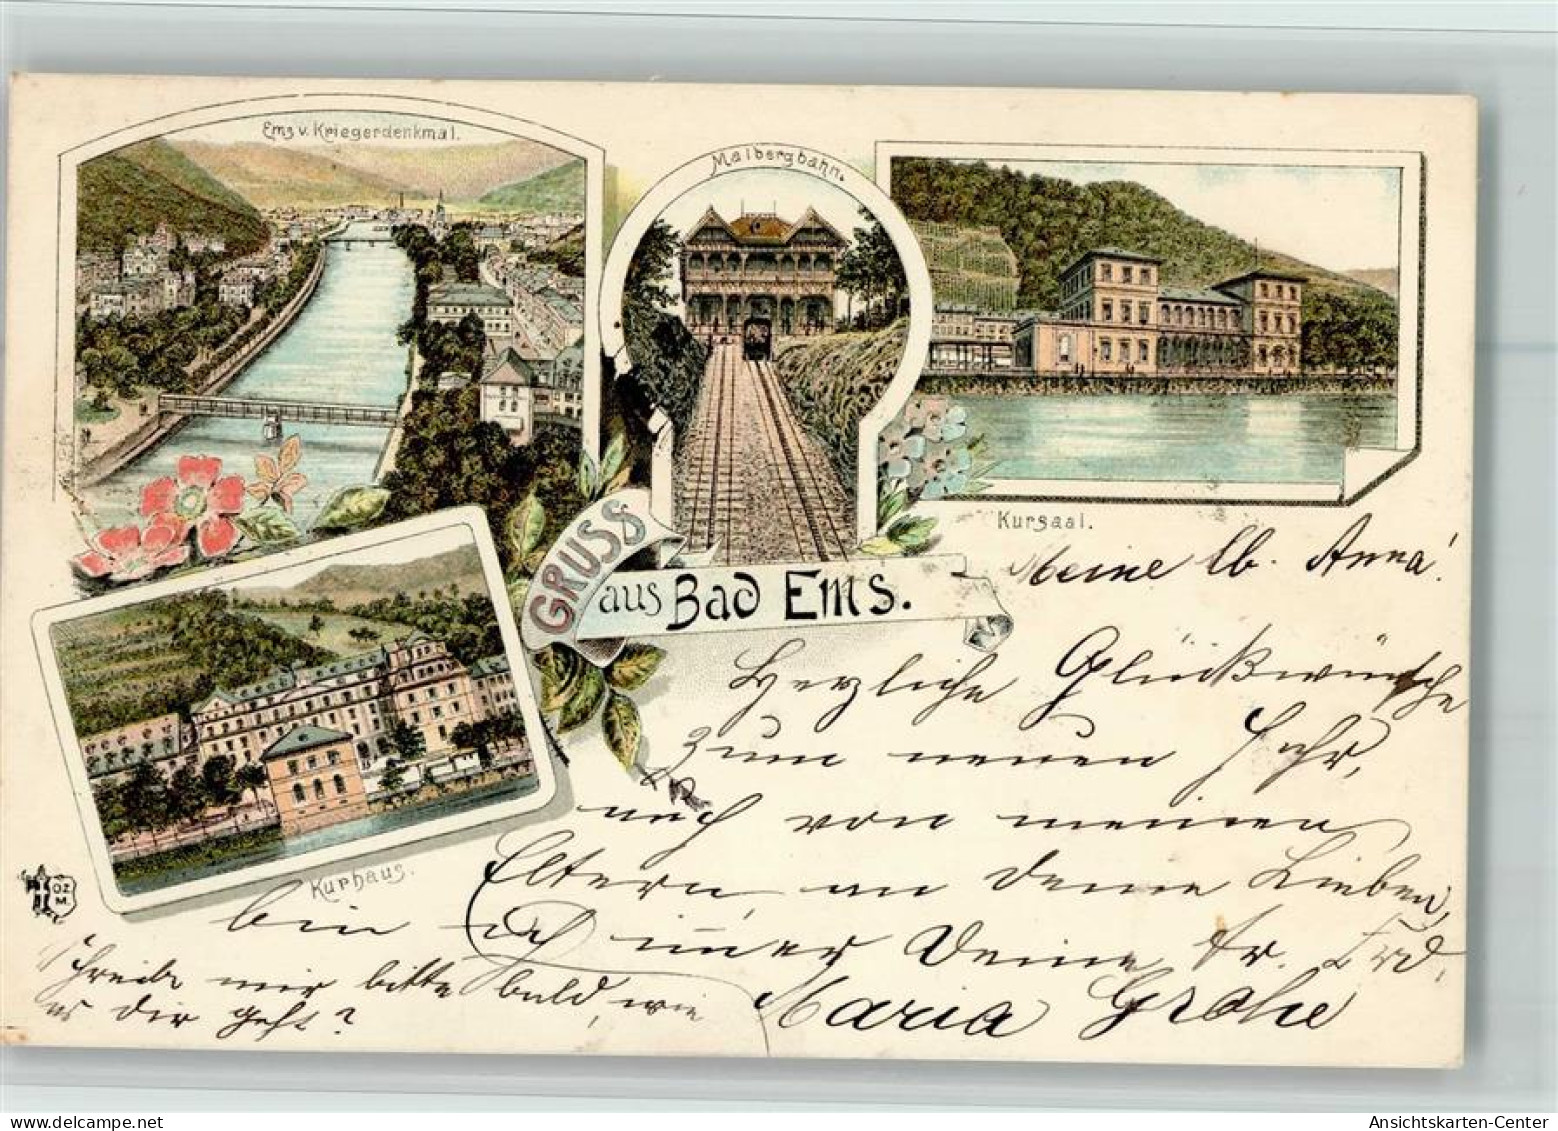 Ems v. Kriegerdenkmal.
Malbergbahn.
Kursaal.
GRUSS
aus Bad Ems.
Kurhaus.
OZ
M
Meine lb. Anna!
Herzliche Glückwünsche
zum neuen Jahr,
auch von meinen
Eltern, an Deine Lieben,
bin ich imer Deine tr. Frd.
Maria Grohe
Schreibe mir bitte bald, wie
es dir geht?
delcampe.net
Ansichtskarten-Center